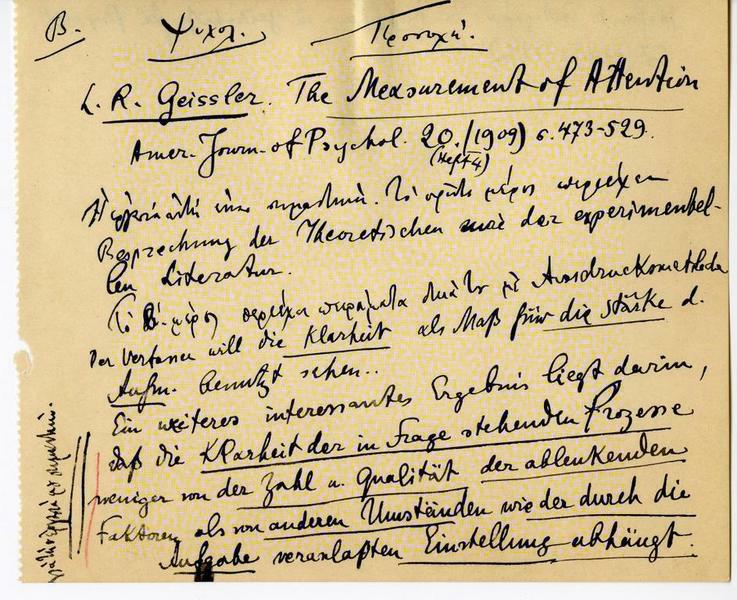 Β. Ψυχολ. Προσοχή.
L. R. Geissler. The Measurement of Attention
Amer. Journ. of Psychol. 20. (1909) σ. 473-529.
(Heft 4)
Ἡ ἐργασία αὐτὴ εἶναι σημαντική. Τὸ πρῶτο μέρος περιέχει
Besprechung der Theoretischen und der experimentel-
len Literatur.
Τὸ β. μέρος περιέχει πειράματα μὲ Ausdrucksmethode
Der Verfasser will die Klarheit als Maß für die Stärke d.
Aufm. benutzt sehen..
Ein weiteres interessantes Ergebnis liegt darin,
daß die Klarheit der in Frage stehenden Prozesse
weniger von der Zahl u. Qualität der ablenkenden
Faktoren als von anderen Umständen wie der durch die
Aufgabe veranlaßten Einstellung abhängt.